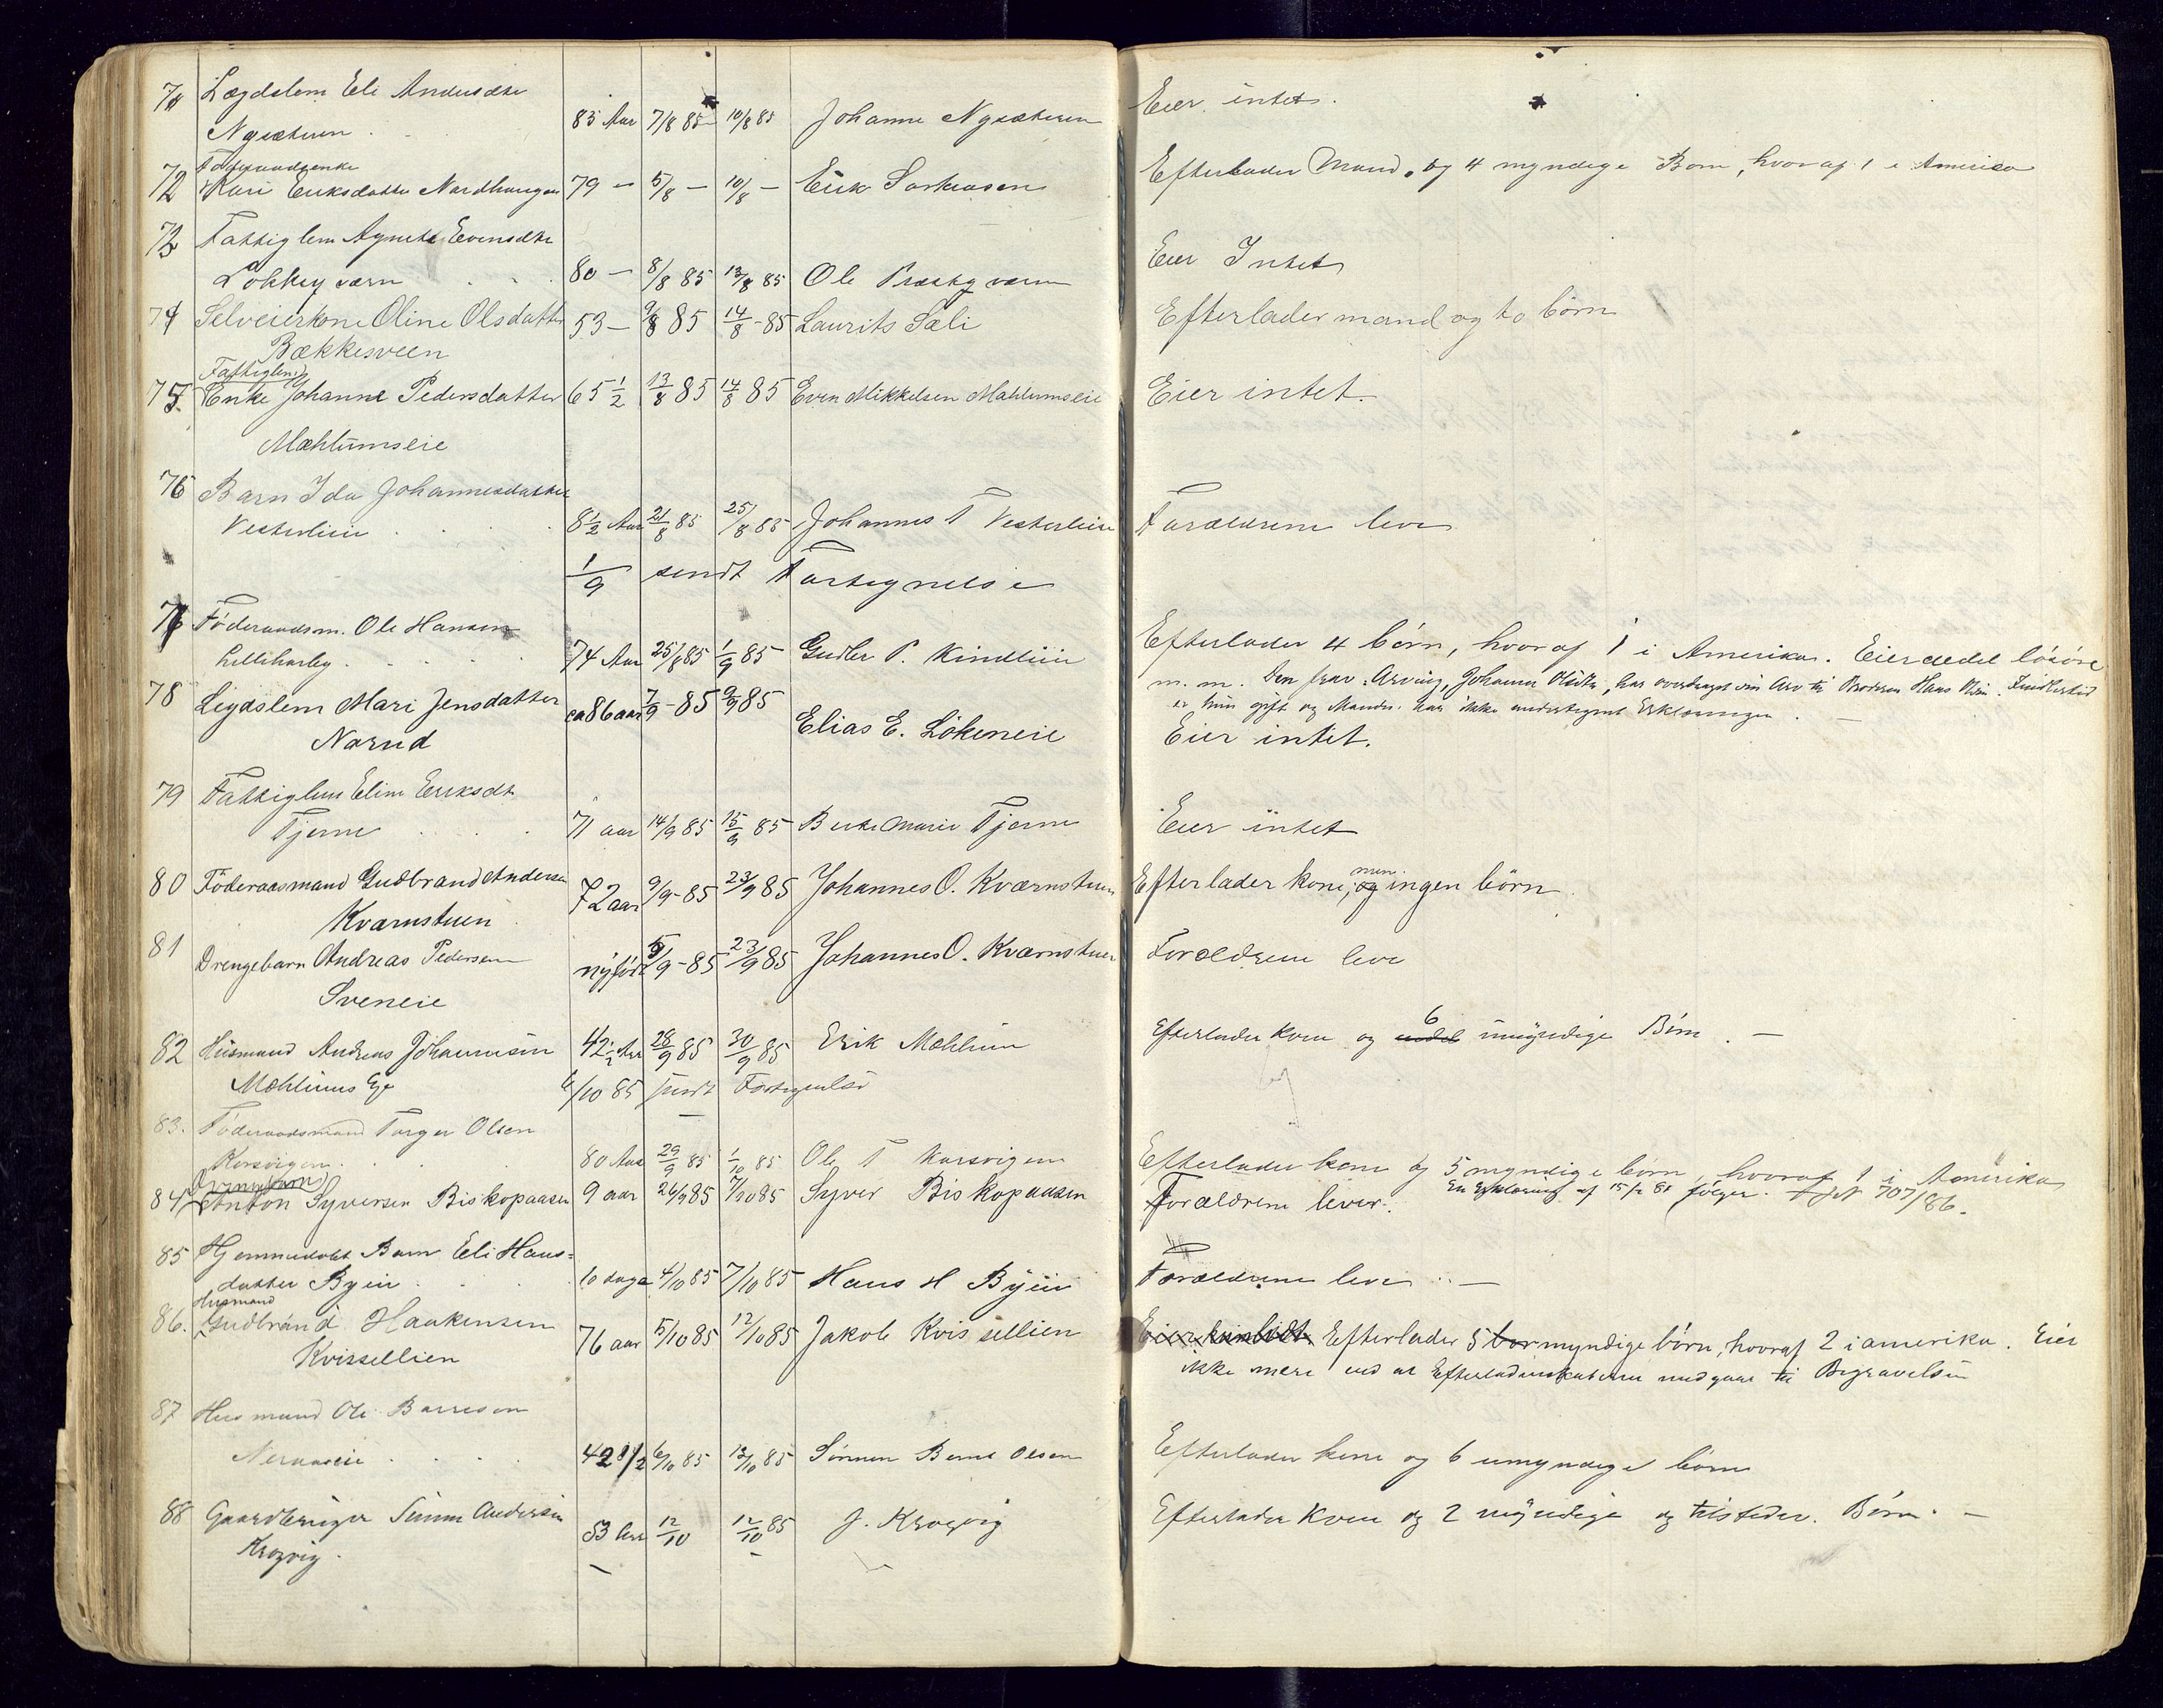 71 Lægdslem Eli Andersdtr
Nysætuen 83 Aar 7/8 85 10/8 85 Johanne Nysætuen Eier intet.
Føderaadsenke
72 Kari Eriksdatter Nordhaugen 79 — 5/8 — 10/8 — Erik Efterlader Mand og 4 myndige Born, hvoraf 1 i America
73 Fattiglem Agnethe Evensdtr
80 — 8/8 85 13/8 85 Ole Eier Intet
74 Selveierkone Oline Olsdatter 53 — 9/8 85 14/8 - 85 Laurits Sæli Efterlader mand og to børn
Bækkesveen
Fattiglem
75. Enke Johanne Pedersdatter 65 1/2 13/8 85 14/8 85 Even Mikkelsen Mæhlumseie Eier intet.
Mæhlumseie
76 Barn Ida Johannesdatter
Vesterlien 8 1/2 Aar 21/8 85 25/8 85 Johannes T Vesterlien Forældrene lever
1/9 sendt Fortegnelse
Føderaadsm. Ole Hansen
Lilleharby 74 Aar 25/8 85 1/9 85 Gudbr P. Kindlien Efterlader 4 børn, hvoraf 1 i Amerika. Eier løsøre
m. m. Den Arving, Johanne har overdraget sin Arv til Broderen Hans
er hun gift og Manden har ikke undertegnet Erklæringen. —
78 Legdslem Mari Jensdatter ca 86 aar 7/9 - 85 9/9 85
Narud Elias E. Løkeneie Eier intet.
79 Fattiglem Eline Eriksdt
Tjerne 71 aar 14/9 85 15/9 85 Berte Marie Tjerne Eier intet
80 Føderaasmand Gudbrand Andersen 72 aar 9/9 - 85 23/9 85 Johannes O. Kværnstuen Efterlader kone, og men ingen børn.
Kværnstuen
81 Drengebarn Andreas Pedersen nyfødt 5/9 - 85 23/9 85 Johannes O. Kværnstuen Forældrene lever
Sveneie
82 Husmand Andreas Johannesen 42 1/2 Aar 28/9 85 30/9 85 Erik Mæhlum Efterlader kone og 6 umyndige Børn. —
Mæhlums Eje 6/10 85 sendt Fortegnelse
83. Føderaadsmand Torger Olsen
Korsvigen 80 Aar 29/9 85 1/10 85 Ole T Korsvigen Efterlader kone og 5 myndige børn hvoraf 1 i Amerika
En Erklæring af følger. 707/86.
84 Anton Syversen Biskopaasen 9 aar 26/9 85 7/10 85 Syver Biskopaasen Forældrene lever.
85 Hjemmedøbt Barn Eli Hans=
datter Byen 10 dage 4/10 85 7/10 85 Hans H Byen Forældrene lever —
Husmand
86. Gudbrand Haakensen 76 aar 5/10 85 12/10 85 Jakob Kvissellien Efterlader 5 bor myndige børn, hvoraf 2 i amerika. Eier
Kvissellien ikke mere end at Efterladenskaberne medgaar til Begravelsen
87 Husmand Ole Børresen
42 1/2 6/10 85 12/10 85 Sønnen Bernt Olsen Efterlader kone og 6 umyndige børn
88 Gaardbruger Simen Andersen
Krogvig 53 Aar 12/10 12/10 85 J. Krogvig Efterlader Kone og 2 myndige og Børn. —